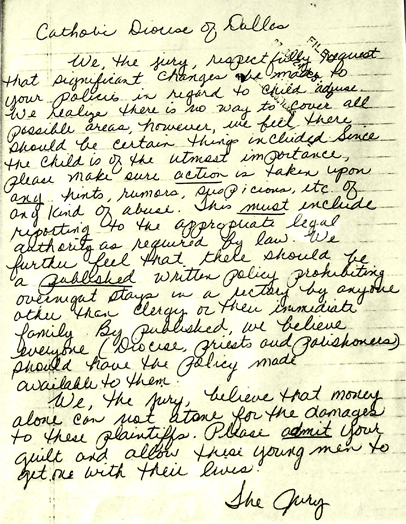 Catholic Diocese of Dallas
We, the jury, respectfully request
that significant changes be made to
your policies in regard to child abuse.
We realize there is no way to cover all
possible areas, however, we feel there
should be certain things included. Since
the child is of the utmost importance,
please make sure action is taken upon
any hints, rumors, suspicions, etc. of
any kind of abuse. This must include
reporting to the appropriate legal
authority as required by law. We
further feel that there should be
a published written policy prohibiting
overnight stays in a rectory by anyone
other than clergy or their immidiate
family. By published, we believe
everyone (Diocise, priests and parishoners)
should have the policy made
available to them.
We, the jury, believe that money
alone can not atone for the damages
to these plaintiffs. Please admit your
guilt and allow these young men to
get one with their lives.
The Jury